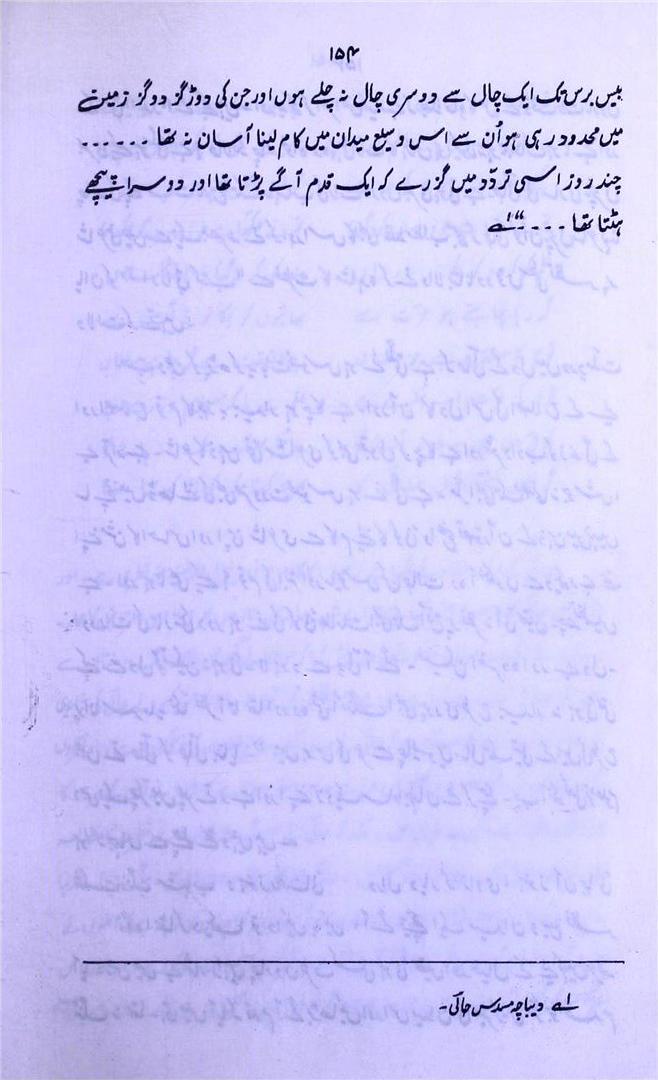 ۱۵۴
بیس برس تک ایک چال سے دوسری چال نہ چلے ہوں اور جن کی دوڑ گز دو گز زمین
میں محدود رہی ہو اُن سے اس وسیع میدان میں کام لینا آسان نہ تھا ۔۔۔۔۔۔
چند روز اسی تردّد میں گزرے کہ ایک قدم آگے پڑتا تھا اور دوسرا پیچھے
ہٹتا تھا ۔۔۔۔۔"۱ے
۱ے دیباچہ مسدس حالی۔